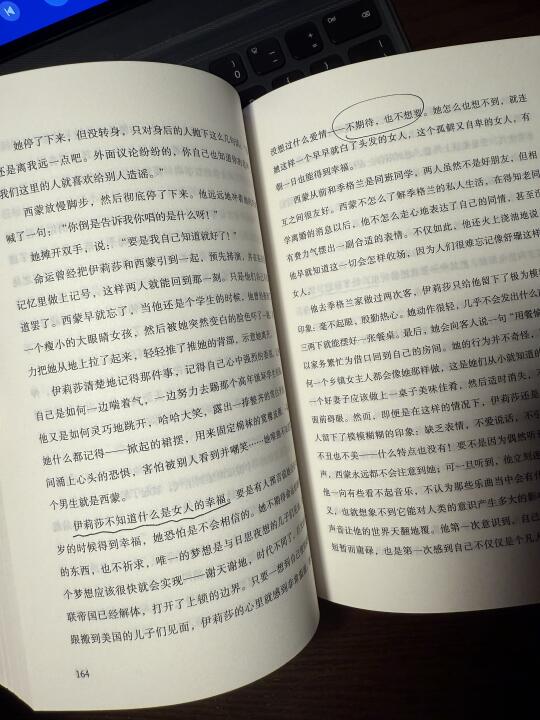 她停了下来，但没转身，只对身后的人抛下这么几句话：“
还是离我远一点吧。外面议论纷纷的，你自己也知道
我们这里的人就喜欢给别人造谣。”
西蒙放慢脚步，然后彻底停了下来。他远远地冲着
喊了一句：“你倒是告诉我你唱的是什么呀！”
她摊开双手，说：“要是我自己知道就好了！”
命运曾经把伊莉莎和西蒙引到一起，预先排演，并在
记忆里做上记号，这样两人就能回到那一刻。只是他们
道罢了。西蒙早就忘了，当他还是个学生的时候，他曾
一个瘦小的大眼睛女孩，然后被她突然变白的脸色吓了
力把她从地上拉了起来，轻轻推了推她的背部，示意她离开
伊莉莎清楚地记得那件事，记得自己心中强烈的
自己是如何一边喘着气，一边努力去踢那个高年级
他又是如何灵巧地跳开，哈哈大笑，露出一排整齐的
她什么都记得——掀起的裙摆，用来固定棉袜的宽
间涌上心头的恐惧，害怕被别人看到并嘲笑……她
个男生就是西蒙。
伊莉莎不知道什么是女人的幸福。要是有人预言说她
岁的时候得到幸福，她恐怕是不会相信的。她不期待
的东西，也不祈求，唯一的梦想是与日思夜想的儿子们
个梦想应该很快就会实现——谢天谢地，时代不同了，
联帝国已经解体，打开了上锁的边界。只要一想到自己
跟搬到美国的儿子们见面，伊莉莎的心里就感到
164
没想过什么爱情——不期待，也不想要。她怎么也想不到，就连
她这样一个早早就白了头发的女人，这个孤僻又自卑的女人，有
朝一日也能得到幸福。
西蒙从前和季格兰是同班同学，两人虽然不是好朋友，但相
互之间很友好。西蒙不怎么了解季格兰的私人生活，在得知老同
学离婚的消息以后，他不怎么走心地表达了自己的同情，甚至没
有费力气摆出一副合适的表情。不仅如此，他还火上浇油地说
他早就知道这一切会怎样收场，因为人们很难忘记像舒珊这样
女人。
他去季格兰家做过两次客，伊莉莎只给他留下了极为模
印象：毫不起眼，殷勤热心。她动作很轻，几乎不会发出什么
三两下就能摆好一张餐桌。最后，她会向客人说一句“用餐愉
以家务繁忙为借口回到自己的房间。她的行为并不奇怪，
何一个乡镇女主人都会像她那样做，这是她们从小就知道的
一个好妻子应该做上一桌子美味佳肴，然后适时消失，不
面前碍眼。然而，即便是在这样的情况下，伊莉莎还是
人留下了模模糊糊的印象：缺乏表情，不爱说话，不
不丑也不美——什么特点也没有！要不是因为偶然听
声，西蒙永远都不会注意到她；可一旦听到，他立刻
他一向有些看不起音乐，不认为那些乐曲当中会有什
义，也就想象不到它能对人类的意识产生多大的影
声音让他的世界天翻地覆。他第一次意识到，自己
短暂而庸碌，也是第一次感到自己不仅仅是个凡人